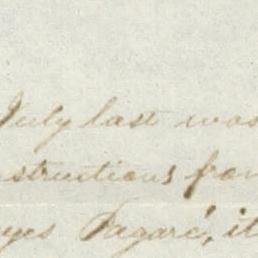 July last was
structions from
yes Pagaré, it